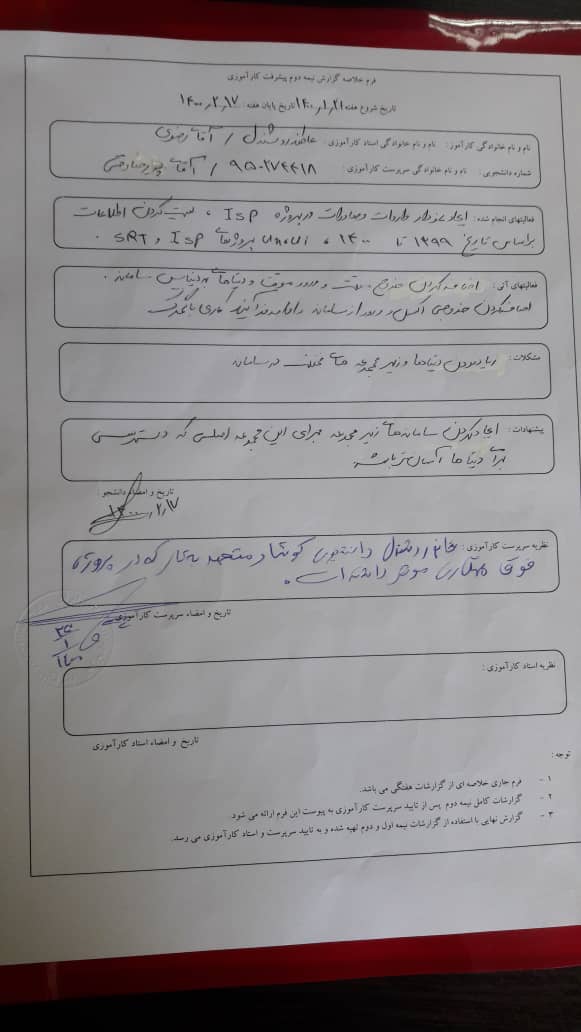 فرم خلاصه گزارش نیمه دوم پیشرفت کارآموزی
تاریخ شروع هفته ۱۴۰۰٫۱٫۲۱ تاریخ پایان هفته: ۱۴۰۰٫۲٫۱۷
نام و نام خانوادگی کارآموز: نام و نام خانوادگی استاد کارآموزی: روشندل / آقای رضوی
شماره دانشجویی: نام و نام خانوادگی سرپرست کارآموزی: ۹۵۰۲۷۴۴۱۸ / آقای
فعالیتهای انجام شده: ایجاد نمودار واردات و صادرات در پروژه ISP ، لیست کردن اطلاعات
براساس تاریخ ۱۳۹۹ تا ۱۴۰۰ ، پروژه های ISP و SRT .
فعالیتهای آتی: اضافه کردن خروج موقت و ورود موقت و دیتاهای به دیتابیس سامانه .
اضافه کردن خروجی اکسل و ورود از سامانه
مشکلات: زیاد بودن دیتاها و زیر مجموعه های مختلف در سامانه
پیشنهادات: ایجاد کردن سامانه های زیر مجموعه برای این مجموعه اصلی که دسترسی
برای دیتا ها آسان تر باشد
تاریخ و امضاء دانشجو:
۱۴۰۰٫۲٫۱۷
نظریه سرپرست کارآموزی: خانم روشندل دانشجوی کوشا و متعهد به کار که در پروژه
فوق همکاری موثر داشته است.
تاریخ و امضاء سرپرست کارآموزی
نظریه استاد کارآموزی:
تاریخ و امضاء استاد کارآموزی
توجه:
۱ - فرم جاری خلاصه ای از گزارشات هفتگی می باشد.
۲ - گزارشات کامل نیمه دوم پس از تایید سرپرست کارآموزی به پیوست این فرم ارائه می شود.
۳ - گزارش نهایی با استفاده از گزارشات نیمه اول و دوم تهیه شده و به تایید سرپرست و استاد کارآموزی می رسد.